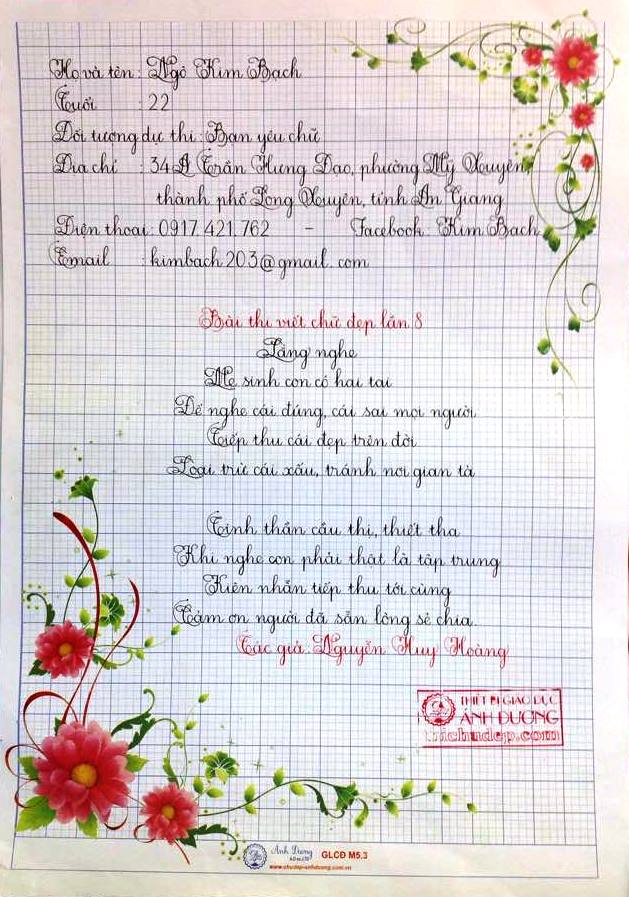 Họ và tên : Ngô Kim Bạch
Tuổi : 22
Đối tượng dự thi : Bạn yêu chữ
Địa chỉ : 34A Trần Hưng Đạo, phường Mỹ Xuyên,
thành phố Long Xuyên, tỉnh An Giang
Điện thoại : 0917.421.762 - Facebook : Kim Bach
Email : kimbach203@gmail.com
Bài thi viết chữ đẹp lần 8
Lắng nghe
Mẹ sinh con có hai tai
Để nghe cái đúng, cái sai mọi người
Tiếp thu cái đẹp trên đời
Loại trừ cái xấu, tránh nơi gian tà
Tinh thần cầu thị, thiết tha
Khi nghe con phải thật là tập trung
Kiên nhẫn tiếp thu tới cùng
Cảm ơn người đã sẵn lòng sẻ chia.
Tác giả : Nguyễn Huy Hoàng
THIẾT BỊ GIÁO DỤC
ÁNH DƯƠNG
Ánh Dương
GLCĐ M5.3
www.chudep-anhduong.com.vn